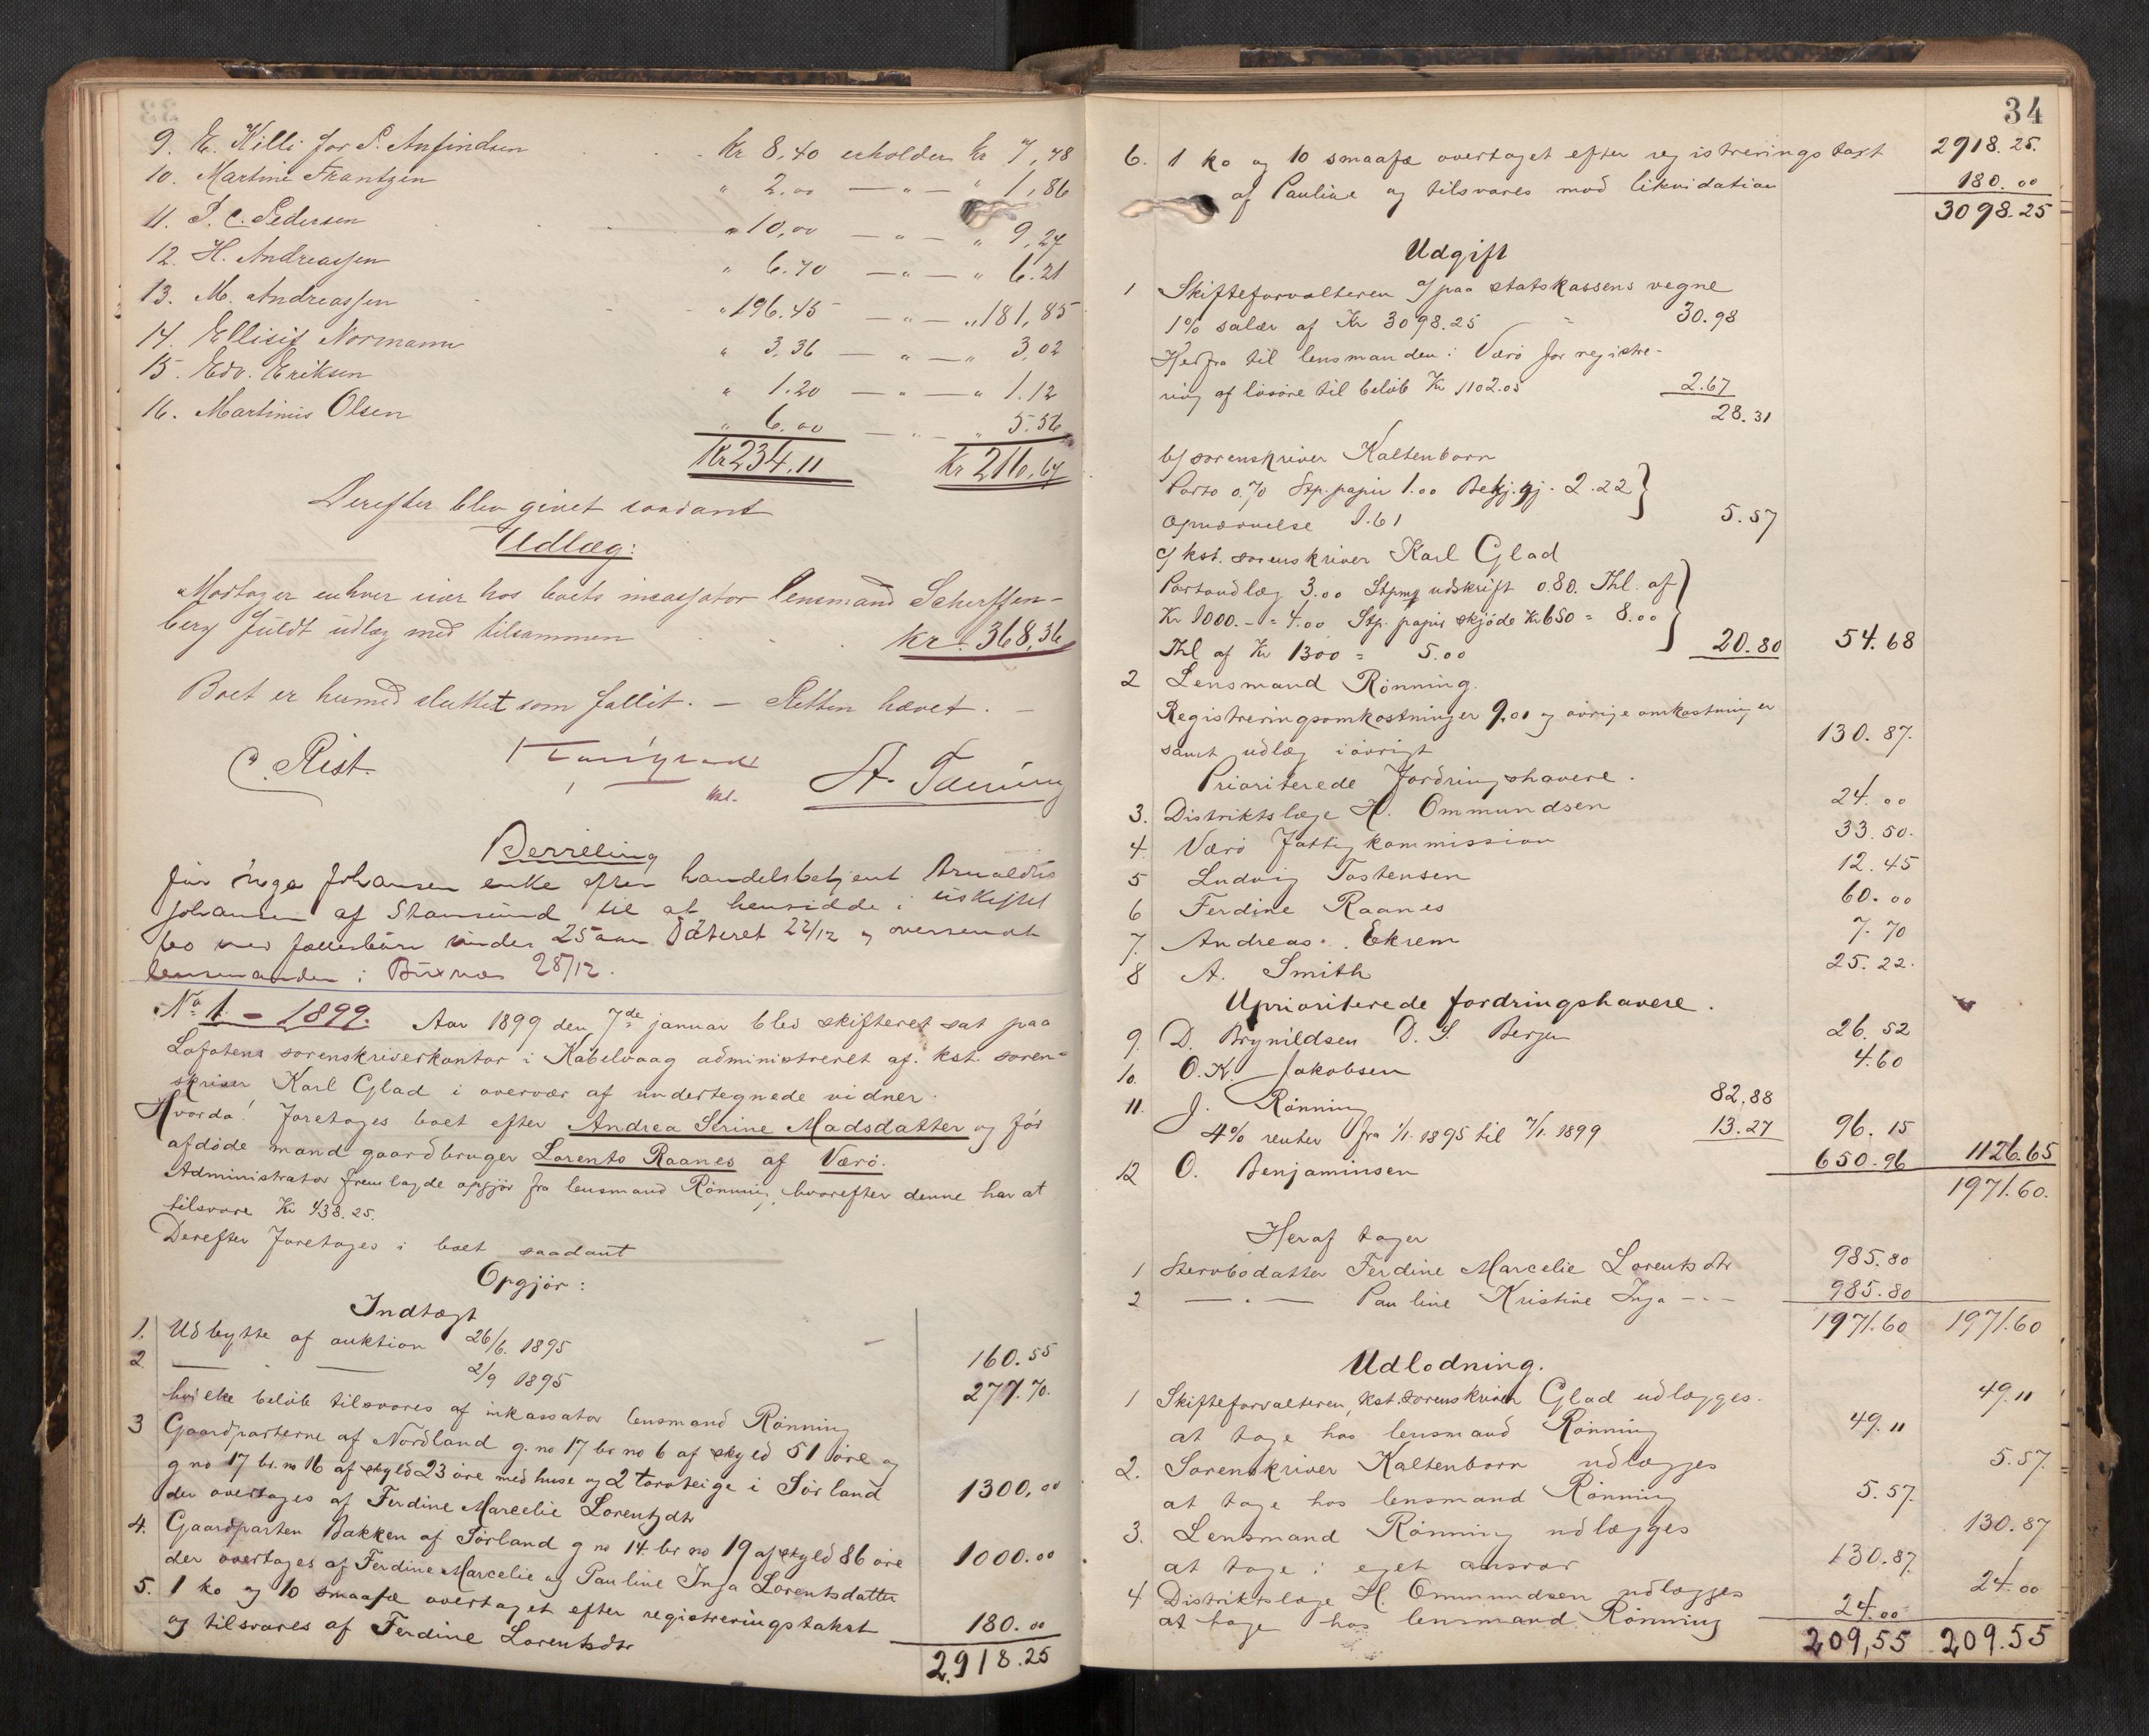 9. E. Killi for S. Anfindsen Kr 8,40 erholder Kr 7,78
10. Martine Frantzen " 2.00 — " — " 1,86
11. P. C. Pedersen " 10,00 — " — " 9,27
12. H. Andreassen " 6.70 — " — " 6.21
13. M. Andreassen " 196.45 — " — " 181,85
14. Ellisif Normann " 3,36 — " — " 3,02
15. Edv. Eriksen " 1.20 — " — " 1.12
16. Martinus Olsen " 6.00 — " — " 5.56
Kr 234.11 Kr 216,67
Derefter blev givet saadant
Udlæg:
Modtager enhver især hos boets incassator lensmand Scherffen-
berg fuldt udlæg med tilsammen kr. 368,36
Boet er hermed sluttet som fallit. — Retten hævet. —
C. Rist.
Berreling
for Inga Johansen enke efter handelsbetjent Arnoldus
Johansen af Stamsund til at hensidde i uskiftet
bo med fællesbørn under 25 aar dateret 22/12 og oversendt
lensmanden i Buxnæs 28/12.
No 1 - 1899. Aar 1899 den 7de januar blev skifteret sat paa
Lofotens sorenskriverkontor i Kabelvaag administreret af kst. soren-
skriver Karl Glad i overvær af undertegnede vidner.
Hvorda! Foretoges boet efter Andrea Serine Madsdatter og før
afdøde mand gaardbruger Lorents Raanes af Værø.
Administrator fremlagde opgjør fra lensmand Rønning, hvorefter denne har at
tilsvare Kr 438.25.
Derefter foretoges i boet saadant
Opgjør:
Indtægt
1. Udbytte af auktion 26/6. 1895 160.55
2 — " — 2/9 1895 277.70.
hvilke beløb tilsvares af inkassator lensmand Rønning
3 Gaardparterne af Nordland g. no 17 br no 6 af skyld 51 øre og
g no 17 br. no 16 af skyld 23 øre med huse og 2 torvteige i Sørland
der overtages af Ferdine Marcelie Lorentzdtr 1300,00
4. Gaardparten Bakken af Sørland g no 14 br no 19 af skyld 86 øre
der overtages af Ferdine Marcelie og Pauline Inga Lorentsdatter 1000.00
5. 1 ko og 10 smaafæ overtaget efter registreringstakst
og tilsvares af Ferdine Lorentsdtr 180.00
2918.25
34
2918.25.
6. 1 ko og 10 smaafæ overtaget efter registreringstaxt
af Pauline og tilsvares mod likvidation 180.00
3098.25
Udgift
1 Skifteforvalteren a/ paa statskassens vegne
1% salær af Kr 3098.25 30.98
Herfra til lensmanden i Værø for registre-
ring af løsøre til beløb Kr 1102.05 2.67
28.31
b/ sorenskriver Kaltenborn
Porto 0.70 Stp. papir 1.00 Bekj. gj. 2.22
opnævnelse 1.61 5.57
c/ kst. sorenskriver Karl Glad
Portoudlæg 3.00 Stpmp udskrift 0.80. Thl. af
Kr 1000.- = 4.00 Stp. papir skjøde Kr 650 = 8.00
Thl af Kr 1300 = 5.00 20.80 54.68
2 Lensmand Rønning.
Registreringsomkostninger 9,01 og øvrige omkostninger
samt udlæg iøvrigt 130.87.
Prioriterede fordringshavere.
3. Distriktslæge H. Ommundsen 24.00
4. Værø Fattigkommission 33.50.
5 Ludvig Tostensen 12.45
6 Ferdine Raanes 60.00
7. Andreas Ekrem 7.70
8 A. Smith 25.22.
Uprioriterede fordringshavere.
9. D. Brynildsen D. S. Bergen 26.52
10. O. K. Jakobsen 4.60
11. J. Rønning 82.88
4% renter fra 1/1. 1895 til 7/1. 1899 13.27 96.15
12 O. Benjaminsen 650.96 1126.65
1971.60.
Heraf tager
1 Stervbodatter Ferdine Marcelie Lorentsdtr 985.80
2 — " — Pauline Kristine Inga — " — 985.80
1971.60 1971.60
Udlodning.
1 Skifteforvalteren, kst. sorenskriver Glad udlægges 49.11
at tage hos lensmand Rønning 49.11
2. Sorenskriver Kaltenborn udlægges 5.57.
at tage hos lensmand Rønning 5.57.
3. Lensmand Rønning udlægges 130.87
at tage i eget ansvar 130.87.
4 Distriktslæge H. Ommundsen udlægges 24.00
at tage hos lensmand Rønning 24.00
209,55 209.55